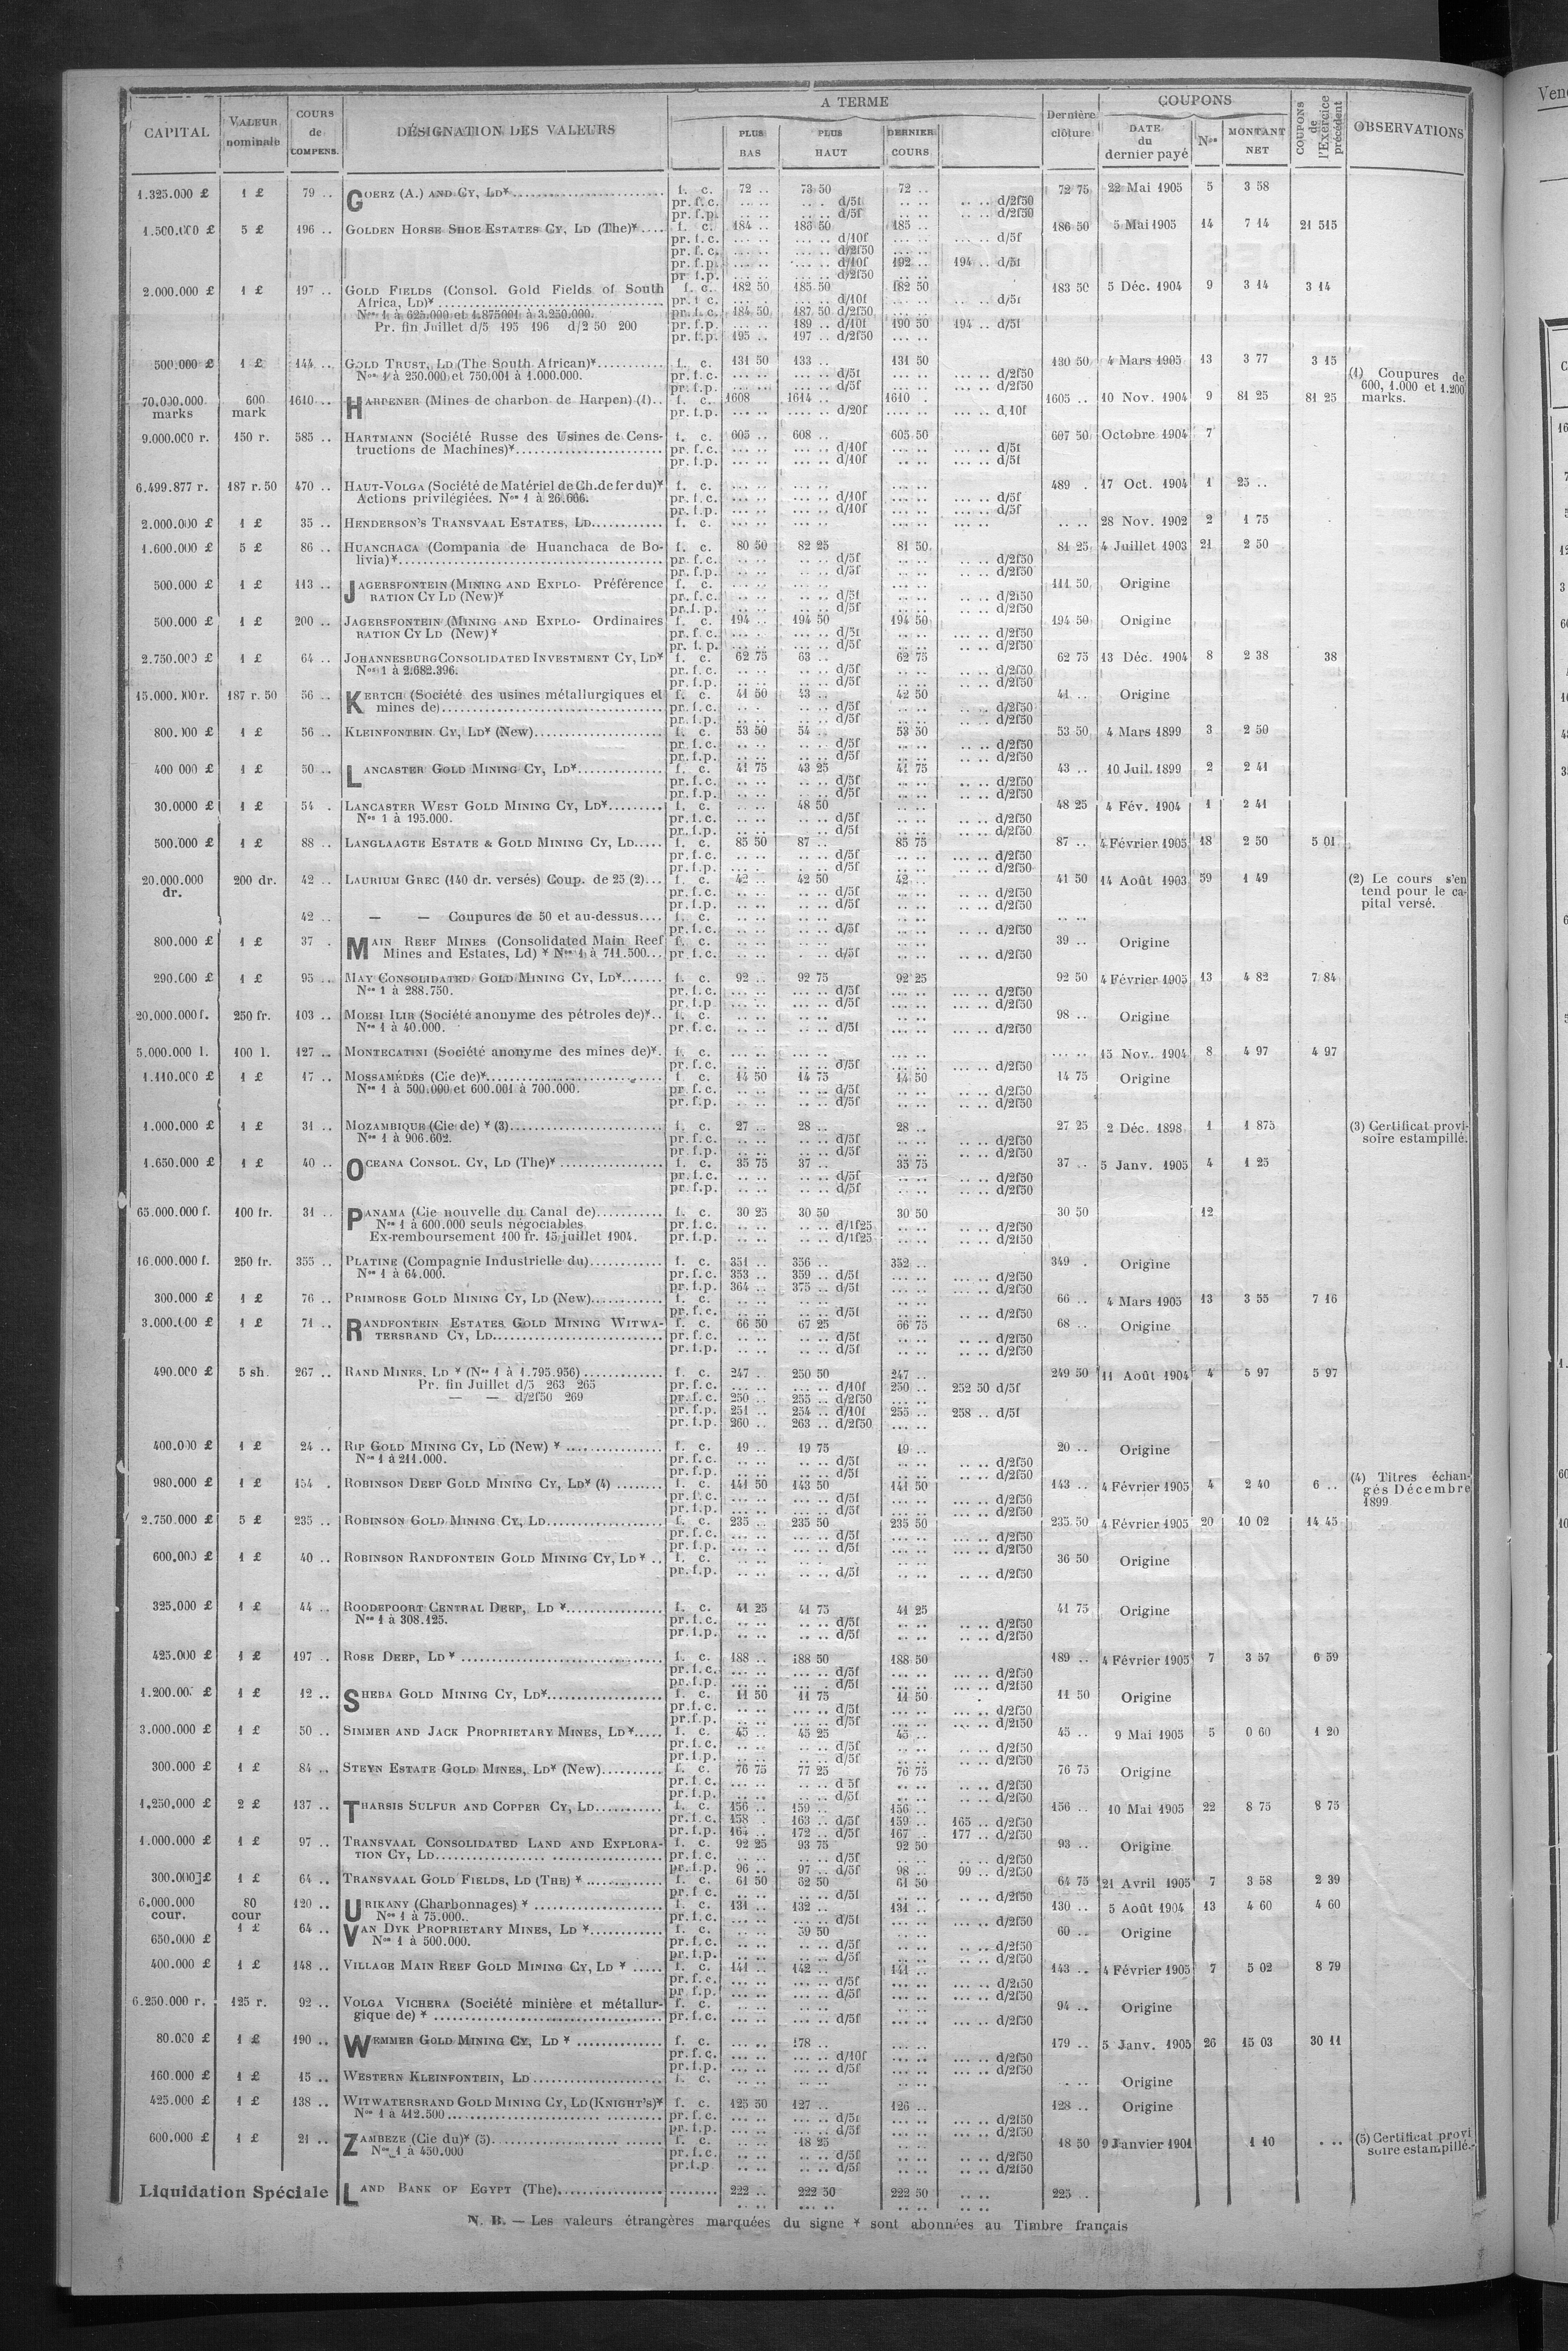 CAPITAL | VALEUR nominale | COURS de COMPENS. | DÉSIGNATION DES VALEURS | A TERME | PLUS BAS | PLUS HAUT | DERNIER COURS | Dernière clôture | COUPONS | DATE du dernier payé | Nos | MONTANT NET | COUPONS de l'Exercice précédent | OBSERVATIONS
1.325.000 £ 1 £ 79 .. GOERZ (A.) AND CY, LD* f. c. 72 .. 73 50 72 .. 72 75 22 Mai 1905 5 3 58
pr. f.c. .. d/5f .. d/2f50
pr. f.p. .. d/5f .. d/2f50
1.500.000 £ 5 £ 196 .. GOLDEN HORSE SHOE ESTATES CY, LD (The)* f. c. 184 .. 186 50 185 .. 186 50 5 Mai 1905 14 7 14 21 515
pr. f.c. .. d/10f .. d/5f
pr. f.c. .. d/2f50
pr. f.p. .. d/10f 192 .. 194 .. d/5f
pr. f.p. .. d/2f50
2.000.000 £ 1 £ 197 .. GOLD FIELDS (Consol. Gold Fields of South f. c. 182 50 185 50 182 50 183 50 5 Déc. 1904 9 3 14 3 14
Africa, LD)* pr. f.c. .. d/10f .. d/5f
Nos 1 à 625.000 et 1.875001 à 3.250.000. pr. f.c. 184 50 187 50 d/2f50
Pr. fin Juillet d/5 195 196 d/2 50 200 pr. f.p. 189 .. d/10f 190 50 194 .. d/5f
pr. f.p. 195 .. 197 .. d/2f50
500.000 £ 1 £ 144 .. GOLD TRUST, LD (The South African)* f. c. 131 50 133 .. 131 50 130 50 4 Mars 1905 13 3 77 3 15
Nos 1 à 250.000 et 750.001 à 1.000.000. pr. f.c. .. d/5f .. d/2f50 (1) Coupures de 600, 1.000 et 1.200 marks.
pr. f.p. .. d/5f .. d/2f50
70.000.000 marks 600 mark 1610 .. HARPENER (Mines de charbon de Harpen) (1).. f. c. 1608 1614 .. 1610 . 1605 .. 10 Nov. 1904 9 81 25 81 25
pr. f.p. .. d/20f .. d/10f
9.000.000 r. 150 r. 585 .. HARTMANN (Société Russe des Usines de Cons- f. c. 605 .. 608 .. 605 50 607 50 Octobre 1904 7
tructions de Machines)* pr. f.c. .. d/10f .. d/5f
pr. f.p. .. d/10f .. d/5f
6.499.877 r. 187 r.50 470 .. HAUT-VOLGA (Société de Matériel de Ch. de fer du)* f. c. 489 . 17 Oct. 1904 1 25 ..
Actions privilégiées. Nos 1 à 26.666. pr. f.c. .. d/10f .. d/5f
pr. f.p. .. d/10f .. d/5f
2.000.000 £ 1 £ 35 .. HENDERSON'S TRANSVAAL ESTATES, LD f. c. .. .. 28 Nov. 1902 2 1 75
1.600.000 £ 5 £ 86 .. HUANCHACA (Compania de Huanchaca de Bo- f. c. 80 50 82 25 81 50 81 25 4 Juillet 1903 21 2 50
livia)* pr. f.c. .. d/5f .. d/2f50
pr. f.p. .. d/5f .. d/2f50
500.000 £ 1 £ 113 .. JAGERSFONTEIN (MINING AND EXPLO- Préférence f. c. 111 50 Origine
RATION CY LD (New)* pr. f.c. .. d/5f .. d/2f50
pr. f.p. .. d/5f .. d/2f50
500.000 £ 1 £ 200 .. JAGERSFONTEIN (MINING AND EXPLO- Ordinaires f. c. 194 .. 194 50 194 50 194 50 Origine
RATION CY LD (New)* pr. f.c. .. d/5f .. d/2f50
pr. f.p. .. d/5f .. d/2f50
2.750.000 £ 1 £ 64 .. JOHANNESBURG CONSOLIDATED INVESTMENT CY, LD* f. c. 62 75 63 .. 62 75 62 75 13 Déc. 1904 8 2 38 38
Nos 1 à 2.682.396. pr. f.c. .. d/5f .. d/2f50
pr. f.p. .. d/5f .. d/2f50
15.000.000 r. 187 r. 50 56 .. KERTCH (Société des usines métallurgiques et f. c. 41 50 43 .. 42 50 41 .. Origine
mines de) pr. f.c. .. d/5f .. d/2f50
pr. f.p. .. d/5f .. d/2f50
800.000 £ 1 £ 56 .. KLEINFONTEIN CY, LD* (New) f. c. 53 50 54 .. 53 50 53 50 4 Mars 1899 3 2 50
pr. f.c. .. d/5f .. d/2f50
pr. f.p. .. d/5f .. d/2f50
400 000 £ 1 £ 50 .. LANCASTER GOLD MINING CY, LD* f. c. 41 75 43 25 41 75 43 .. 10 Juil. 1899 2 2 41
pr. f.c. .. d/5f .. d/2f50
pr. f.p. .. d/5f .. d/2f50
30.0000 £ 1 £ 54 . LANCASTER WEST GOLD MINING CY, LD* f. c. 48 50 48 25 4 Fév. 1904 1 2 41
Nos 1 à 195.000. pr. f.c. .. d/5f .. d/2f50
pr. f.p. .. d/5f .. d/2f50
500.000 £ 1 £ 88 .. LANGLAAGTE ESTATE & GOLD MINING CY, LD f. c. 85 50 87 .. 85 75 87 .. 4 Février 1905 18 2 50 5 01
pr. f.c. .. d/5f .. d/2f50
pr. f.p. .. d/5f .. d/2f50
20.000.000 dr. 200 dr. 42 .. LAURIUM GREC (140 dr. versés) Coup. de 25 (2) f. c. 42 .. 42 50 42 .. 41 50 14 Août 1903 59 1 49 (2) Le cours s'en tend pour le ca- pital versé.
pr. f.c. .. d/5f .. d/2f50
pr. f.p. .. d/5f .. d/2f50
42 .. — — Coupures de 50 et au-dessus f. c.
pr. f.c. .. d/5f .. d/2f50
800.000 £ 1 £ 37 . MAIN REEF MINES (Consolidated Main Reef f. c. 39 .. Origine
Mines and Estates, Ld) * Nos 1 à 711.500 pr. f.c. .. d/5f .. d/2f50
290.000 £ 1 £ 95 .. MAY CONSOLIDATED GOLD MINING CY, LD* f. c. 92 .. 92 75 92 25 92 50 4 Février 1905 13 4 82 7 84
Nos 1 à 288.750. pr. f.c. .. d/5f .. d/2f50
pr. f.p. .. d/5f .. d/2f50
20.000.000 f. 250 fr. 103 .. MOESI ILIR (Société anonyme des pétroles de)* f. c. 98 .. Origine
Nos 1 à 40.000. pr. f.c. .. d/5f .. d/2f50
5.000.000 l. 100 l. 127 .. MONTECATINI (Société anonyme des mines de)* f. c. 15 Nov. 1904 8 4 97 4 97
pr. f.c. .. d/5f .. d/2f50
1.110.000 £ 1 £ 17 .. MOSSAMÉDÈS (Cie de)* f. c. 14 50 14 75 14 50 14 75 Origine
Nos 1 à 500.000 et 600.001 à 700.000. pr. f.c. .. d/5f .. d/2f50
pr. f.p. .. d/5f .. d/2f50
1.000.000 £ 1 £ 31 .. MOZAMBIQUE (Cie de) * (3) f. c. 27 .. 28 .. 28 .. 27 25 2 Déc. 1898 1 1 875 (3) Certificat provi- soire estampillé.
Nos 1 à 906.602. pr. f.c. .. d/5f .. d/2f50
pr. f.p. .. d/5f .. d/2f50
1.650.000 £ 1 £ 40 .. OCEANA CONSOL. CY, LD (The)* f. c. 35 75 37 .. 35 75 37 .. 5 Janv. 1905 4 1 25
pr. f.c. .. d/5f .. d/2f50
pr. f.p. .. d/5f .. d/2f50
65.000.000 f. 100 fr. 31 .. PANAMA (Cie nouvelle du Canal de) f. c. 30 25 30 50 30 50 30 50 12
Nos 1 à 600.000 seuls négociables pr. f.c. .. d/1f25 .. d/2f50
Ex-remboursement 100 fr. 15 juillet 1904. pr. f.p. .. d/1f25 .. d/2f50
16.000.000 f. 250 fr. 355 .. PLATINE (Compagnie Industrielle du) f. c. 351 .. 356 .. 352 .. 349 . Origine
Nos 1 à 64.000. pr. f.c. 353 .. 359 .. d/5f .. d/2f50
pr. f.p. 364 .. 375 .. d/5f .. d/2f50
300.000 £ 1 £ 76 .. PRIMROSE GOLD MINING CY, LD (New) f. c. 66 .. 4 Mars 1905 13 3 55 7 16
pr. f.c. .. d/5f .. d/2f50
3.000.000 £ 1 £ 71 .. RANDFONTEIN ESTATES GOLD MINING WITWA- f. c. 66 50 67 25 66 75 68 .. Origine
TERSRAND CY, LD pr. f.c. .. d/5f .. d/2f50
pr. f.p. .. d/5f .. d/2f50
490.000 £ 5 sh. 267 .. RAND MINES, LD * (Nos 1 à 1.795.956) f. c. 247 . 250 50 247 .. 249 50 11 Août 1904 4 5 97 5 97
Pr. fin Juillet d/5 263 265 pr. f.c. .. d/10f 250 .. 252 50 d/5f
— — d/2f50 269 pr. f.c. 250 .. 255 .. d/2f50
pr. f.p. 251 .. 254 .. d/10f 255 .. 258 .. d/5f
pr. f.p. 260 .. 263 .. d/2f50
400.000 £ 1 £ 24 .. RIP GOLD MINING CY, LD (New) * f. c. 19 .. 19 75 19 .. 20 .. Origine
Nos 1 à 211.000. pr. f.c. .. d/5f .. d/2f50
pr. f.p. .. d/5f .. d/2f50
980.000 £ 1 £ 154 . ROBINSON DEEP GOLD MINING CY, LD* (4) f. c. 141 50 143 50 141 50 143 .. 4 Février 1905 4 2 40 6 .. (4) Titres échan- gés Décembre 1899
pr. f.c. .. d/5f .. d/2f50
pr. f.p. .. d/5f .. d/2f50
2.750.000 £ 5 £ 235 .. ROBINSON GOLD MINING CY, LD f. c. 235 .. 235 50 235 50 235 50 4 Février 1905 20 10 02 14 45
pr. f.c. .. d/5f .. d/2f50
pr. f.p. .. d/5f .. d/2f50
600.000 £ 1 £ 40 .. ROBINSON RANDFONTEIN GOLD MINING CY, LD * f. c. 36 50 Origine
pr. f.p. .. d/5f .. d/2f50
325.000 £ 1 £ 44 .. ROODEPOORT CENTRAL DEEP, LD * f. c. 41 25 41 75 41 25 41 75 Origine
Nos 1 à 308.125. pr. f.c. .. d/5f .. d/2f50
pr. f.p. .. d/5f .. d/2f50
425.000 £ 1 £ 197 .. ROSE DEEP, LD * f. c. 188 .. 188 50 188 50 189 .. 4 Février 1905 7 3 57 6 59
pr. f.c. .. d/5f .. d/2f50
pr. f.p. .. d/5f .. d/2f50
1.200.00 £ 1 £ 12 .. SHEBA GOLD MINING CY, LD* f. c. 11 50 11 75 11 50 11 50 Origine
pr. f.c. .. d/5f .. d/2f50
pr. f.p. .. d/5f .. d/2f50
3.000.000 £ 1 £ 50 .. SIMMER AND JACK PROPRIETARY MINES, LD* f. c. 45 .. 45 25 45 .. 45 .. 9 Mai 1905 5 0 60 1 20
pr. f.c. .. d/5f .. d/2f50
pr. f.p. .. d/5f .. d/2f50
300.000 £ 1 £ 84 .. STEYN ESTATE GOLD MINES, LD* (New) f. c. 76 75 77 25 76 75 76 75 Origine
pr. f.c. .. d 5f .. d/2f50
pr. f.p. .. d/5f .. d/2f50
1.250.000 £ 2 £ 137 .. THARSIS SULFUR AND COPPER CY, LD f. c. 156 .. 159 .. 156 .. 156 .. 10 Mai 1905 22 8 75 8 75
pr. f.c. 158 . 163 .. d/5f 159 .. 165 .. d/2f50
pr. f.p. 164 .. 172 .. d/5f 167 .. 177 .. d/2f50
1.000.000 £ 1 £ 97 .. TRANSVAAL CONSOLIDATED LAND AND EXPLORA- f. c. 92 25 93 75 92 50 93 .. Origine
TION CY, LD pr. f.c. .. d/5f .. d/2f50
pr. f.p. 96 .. 97 .. d/5f 98 .. 99 .. d/2f50
300.000 £ 1 £ 64 .. TRANSVAAL GOLD FIELDS, LD (THE) * f. c. 61 50 62 50 61 50 64 75 21 Avril 1905 7 3 58 2 39
pr. f.c. .. d/5f .. d/2f50
6.000.000 cour. 80 cour 120 .. URIKANY (Charbonnages) * f. c. 131 .. 132 .. 131 .. 130 .. 5 Août 1904 13 4 60 4 60
Nos 1 à 75.000. pr. f.c. .. d/5f .. d/2f50
650.000 £ 1 £ 64 .. VAN DYK PROPRIETARY MINES, LD * f. c. 59 50 60 .. Origine
Nos 1 à 500.000. pr. f.c. .. d/5f .. d/2f50
pr. f.p. .. d/5f .. d/2f50
400.000 £ 1 £ 148 .. VILLAGE MAIN REEF GOLD MINING CY, LD * f. c. 141 .. 142 .. 141 .. 143 .. 4 Février 1905 7 5 02 8 79
pr. f.c. .. d/5f .. d/2f50
pr. f.p. .. d/5f .. d/2f50
6.250.000 r. 125 r. 92 .. VOLGA VICHERA (Société minière et métallur- f. c. 94 .. Origine
gique de) * pr. f.c. .. d/5f .. d/2f50
80.000 £ 1 £ 190 .. WEMMER GOLD MINING CY, LD * f. c. 178 .. 179 .. 5 Janv. 1905 26 15 03 30 11
pr. f.c. .. d/10f .. d/2f50
pr. f.p. .. d/5f .. d/2f50
160.000 £ 1 £ 15 .. WESTERN KLEINFONTEIN, LD f. c. Origine
425.000 £ 1 £ 138 .. WITWATERSRAND GOLD MINING CY, LD (KNIGHT'S)* f. c. 125 50 127 .. 126 .. 128 .. Origine
Nos 1 à 412.500 pr. f.c. .. d/5f .. d/2f50
pr. f.p. .. d/5f .. d/2f50
600.000 £ 1 £ 21 .. ZAMBEZE (Cie du)* (5) f. c. 18 25 18 50 9 Janvier 1901 1 10 (5) Certificat provi soire estampillé.
Nos 1 à 450.000 pr. f.c. .. d/5f .. d/2f50
pr. f.p. .. d/5f .. d/2f50
Liquidation Spéciale LAND BANK OF EGYPT (The) 222 .. 222 50 222 50 225 ..
N. B. — Les valeurs étrangères marquées du signe * sont abonnées au Timbre français